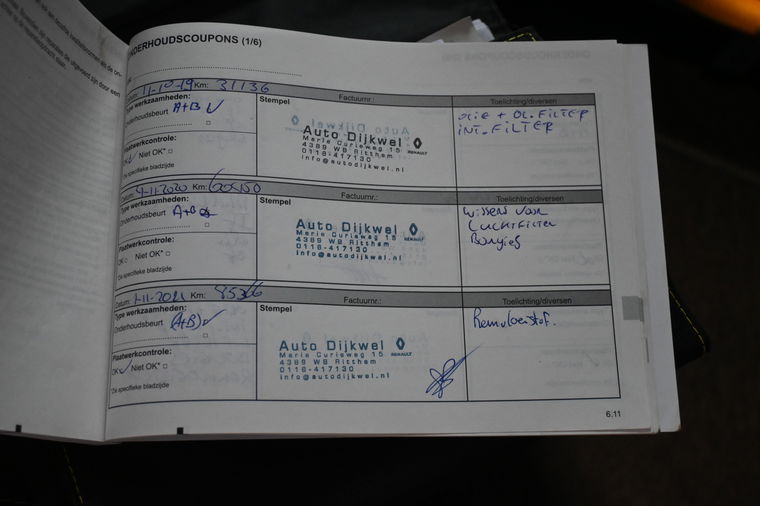 ONDERHOUDSCOUPONS (1/6)
Datum: 11-10-19 Km: 31136
Type werkzaamheden:
Onderhoudsbeurt A+B ✓
Plaatwerkcontrole:
OK ✓ Niet OK* □
*Zie specifieke bladzijde
Stempel
Factuurnr.:
Auto Dijkwel
RENAULT
Marie Curieweg 15
4389 WB Ritthem
0118-417130
info@autodijkwel.nl
Toelichting/diversen
OLIE + OL. FILTER
INT. FILTER
Km:
Type werkzaamheden:
Onderhoudsbeurt A+B
Plaatwerkcontrole:
OK Niet OK* □
*Zie specifieke bladzijde
Stempel
Factuurnr.:
Auto Dijkwel
Marie Curieweg 15
4389 WB Ritthem
0118-417130
info@autodijkwel.nl
Toelichting/diversen
Wissers voor
Luchtfilter
Bougies
Datum: Km:
Type werkzaamheden:
Onderhoudsbeurt (A+B) ✓
Plaatwerkcontrole:
OK ✓ Niet OK* □
*Zie specifieke bladzijde
Stempel
Factuurnr.:
Auto Dijkwel
RENAULT
Marie Curieweg 15
4389 WB Ritthem
0118-417130
info@autodijkwel.nl
Toelichting/diversen
Remvloeistof.
6.11